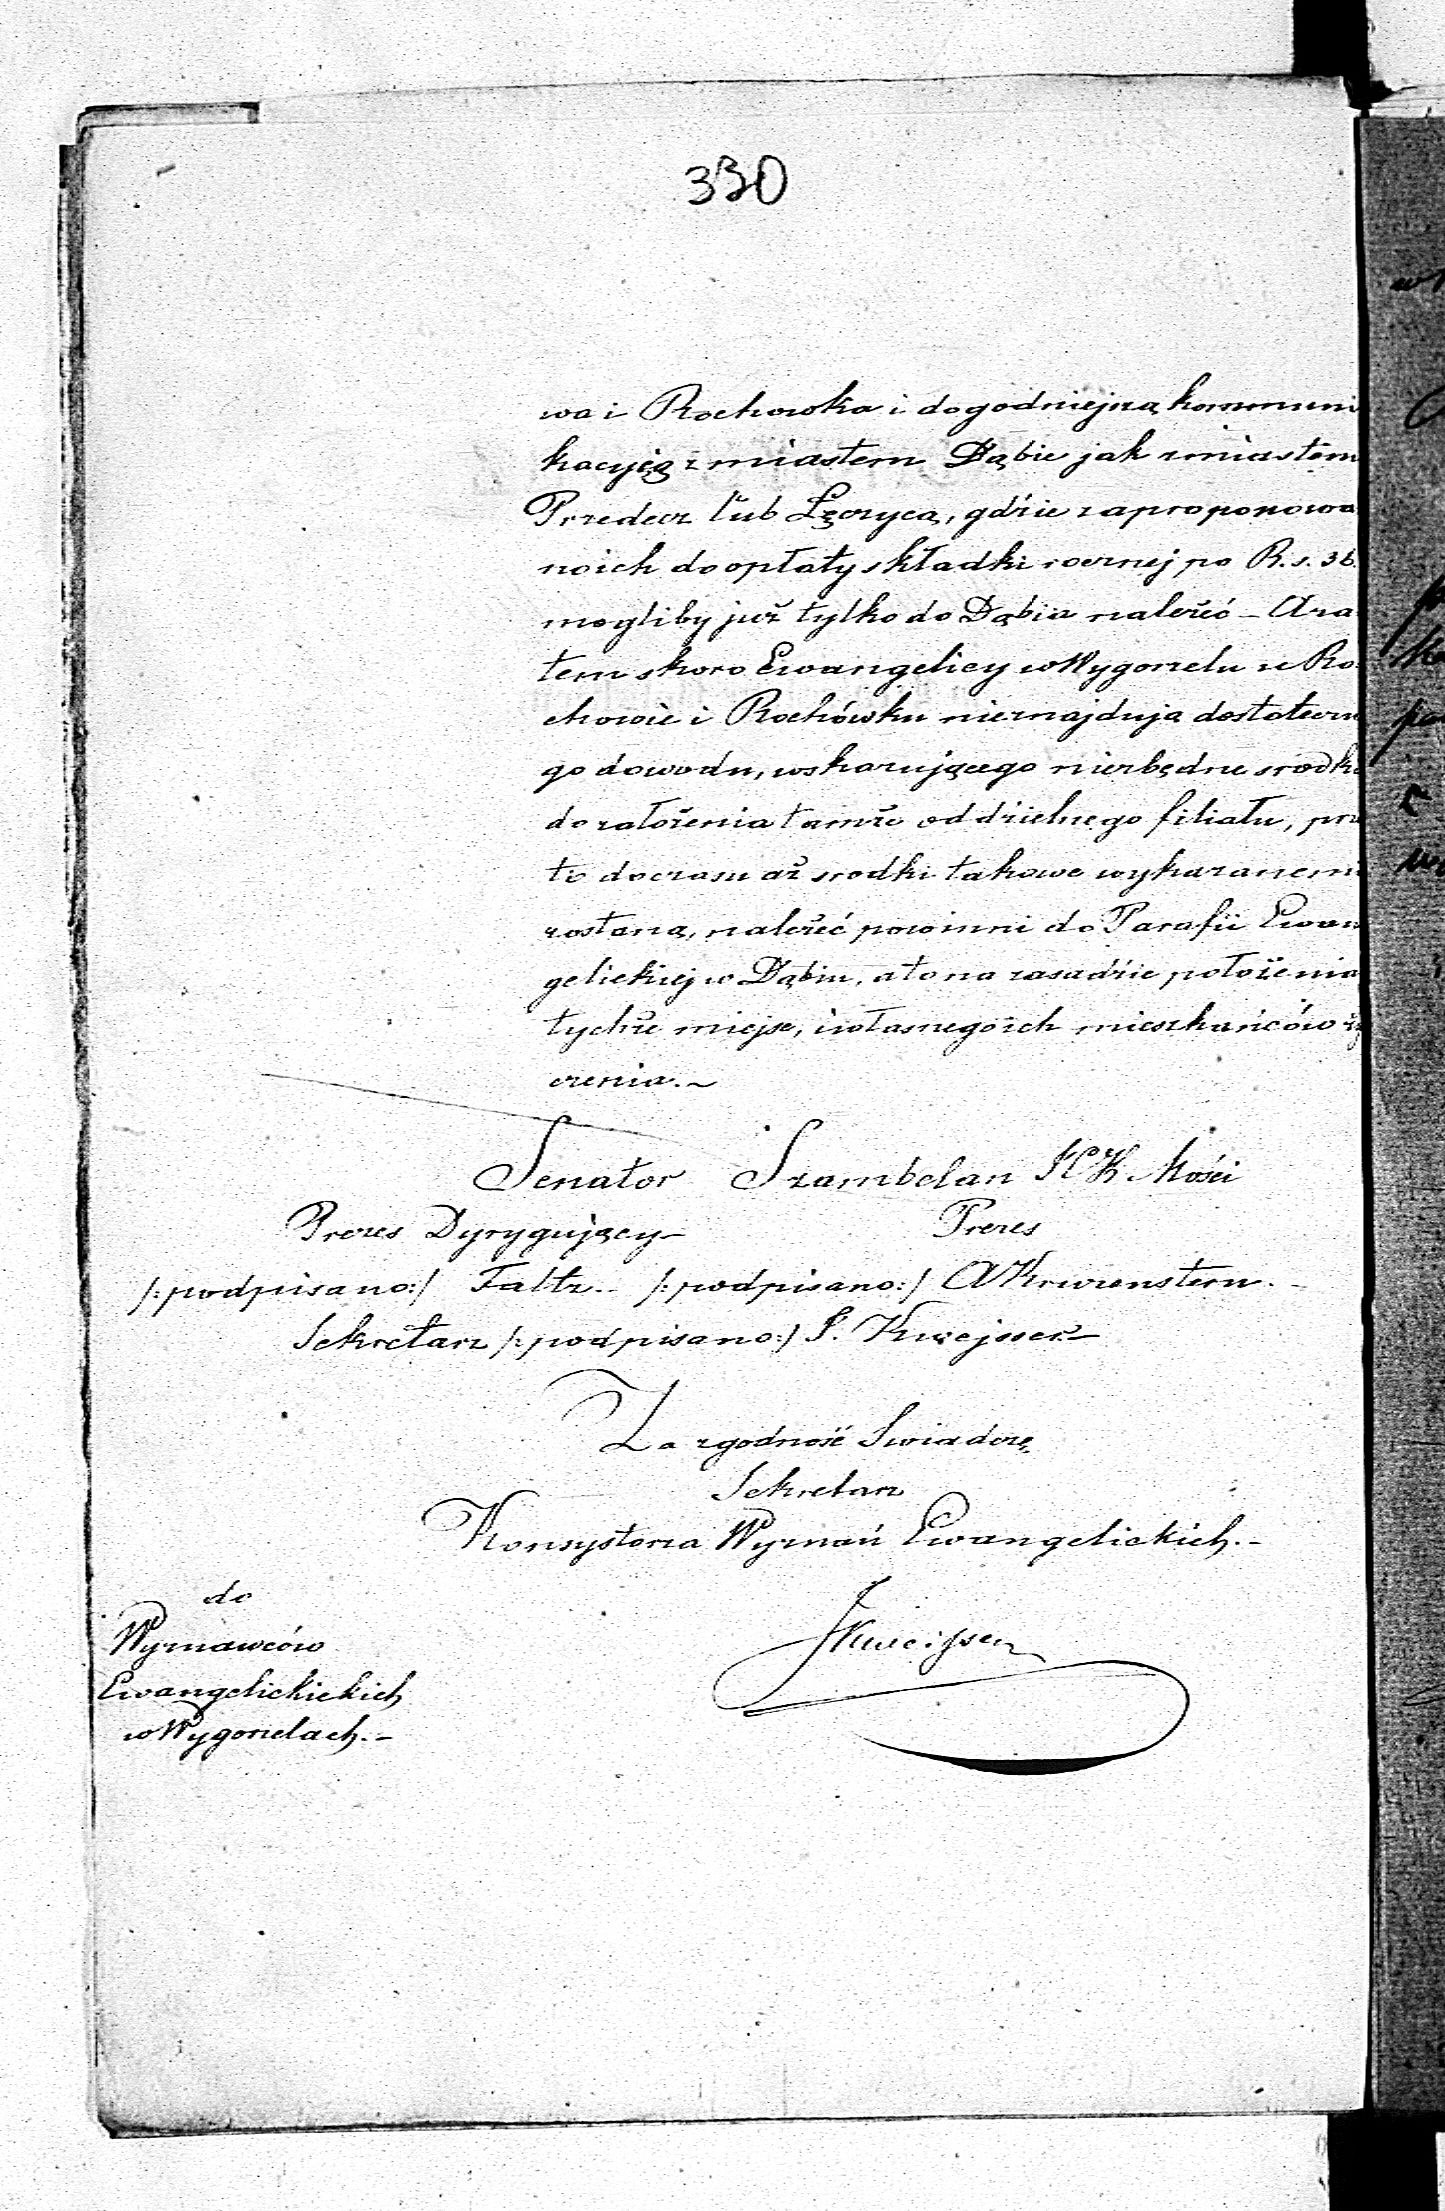 330
wa i Rochowka i dogodniejszą kommuni
kacyją z miastem Dąbie jak z miastem
Przedecz lub Łęczycą, gdzie zaproponowa
no ich do opłaty składki rocznej po R.s. 36.
mogliby już tylko do Dąbia należeć – A za
tem skoro Ewangelicy w Wygorzelu w Ro
chowie i Rochówku nieznajdują dostateczn
go dowodu, wskazującego niezbędne srodki
do założenia tamże oddzielnego filiału, prze
to do czasu aż srodki takowe wykazanemi
zostaną, należeć powinni do Parafii Ewan
gelickiej w Dąbiu, a to na zasadzie położenia
tychże miejsc, i własnego ich mieszkańców ży
czenia. –
Senator Szambelan JCK Mości
Prezes Dyrygujący Prezes
/:podpisano:/ Faltz.– /:podpisano:/ A Krurenstern.–
Sekretarz /:podpisano:/ J. Kwejsser
Za zgodność Swiadczę
Sekretarz
Konsystorza Wyznań Ewangelickich.–
JKweisser
do
Wyznawców
Ewangelickickich
w Wygorzelach.–